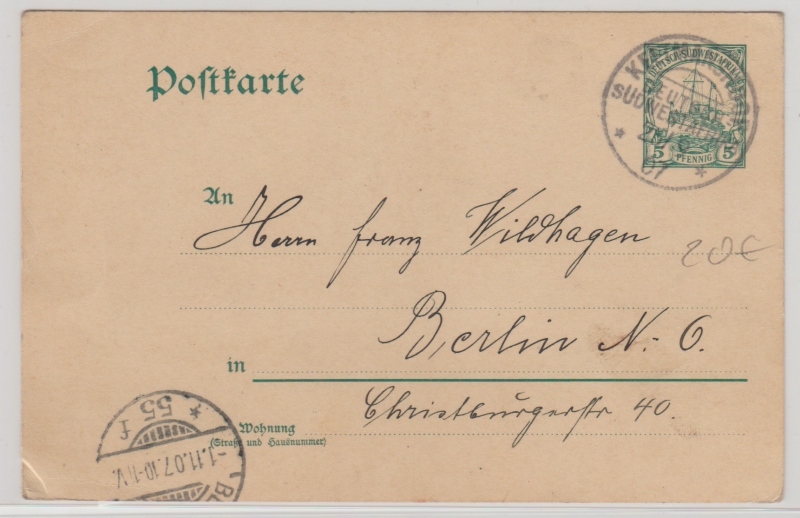 Postkarte
DEUTSCH-SÜDWESTAFRIKA
5 PFENNIG 5
SÜDWESTAFRIKA
07
An
Herrn Franz Wildhagen
20€
Berlin N. O.
in
Christburgerstr 40.
Wohnung
(Straße und Hausnummer)
* 55 f
-1.11.07.10-11V.